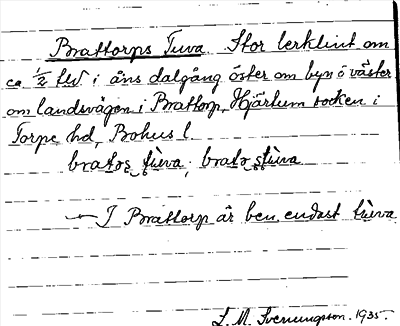 Brattorps Tuva. Stor lerklint om
ca ½ hl i åns dalgång öster om byn o väster
om landsvägen i Brattorp, Hjärtum socken i
Torpe hd, Bohus l.
bratos tùva, brato stùva
I Brattorp är ben. endast tùva
L. M. Svenungsson. 1935.